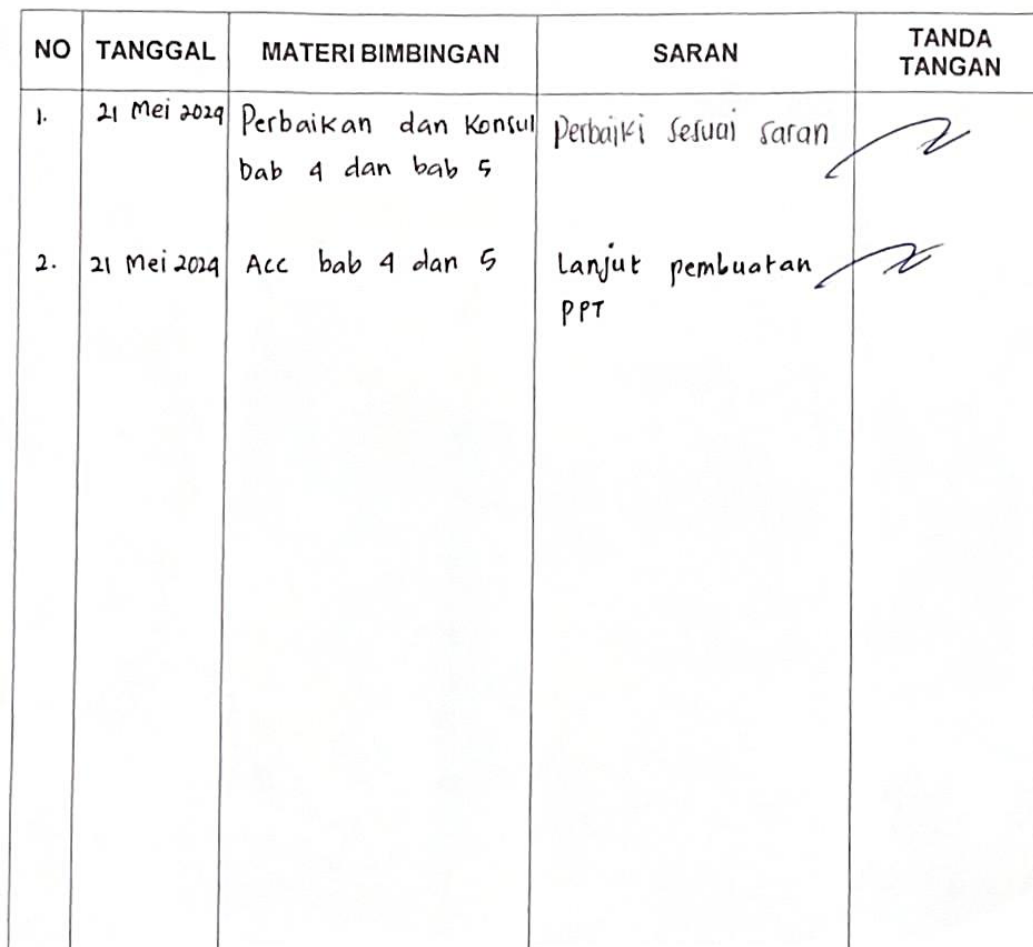 NO TANGGAL MATERI BIMBINGAN SARAN TANDA TANGAN
1. 21 Mei 2024 Perbaikan dan Konsul Perbaiki sesuai saran
bab 4 dan bab 5
2. 21 Mei 2024 Acc bab 4 dan 5 Lanjut pembuatan
PPT